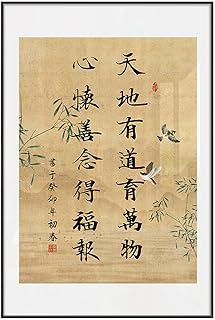 天地有道育萬物
心懷善念得福報
書于癸卯年初春